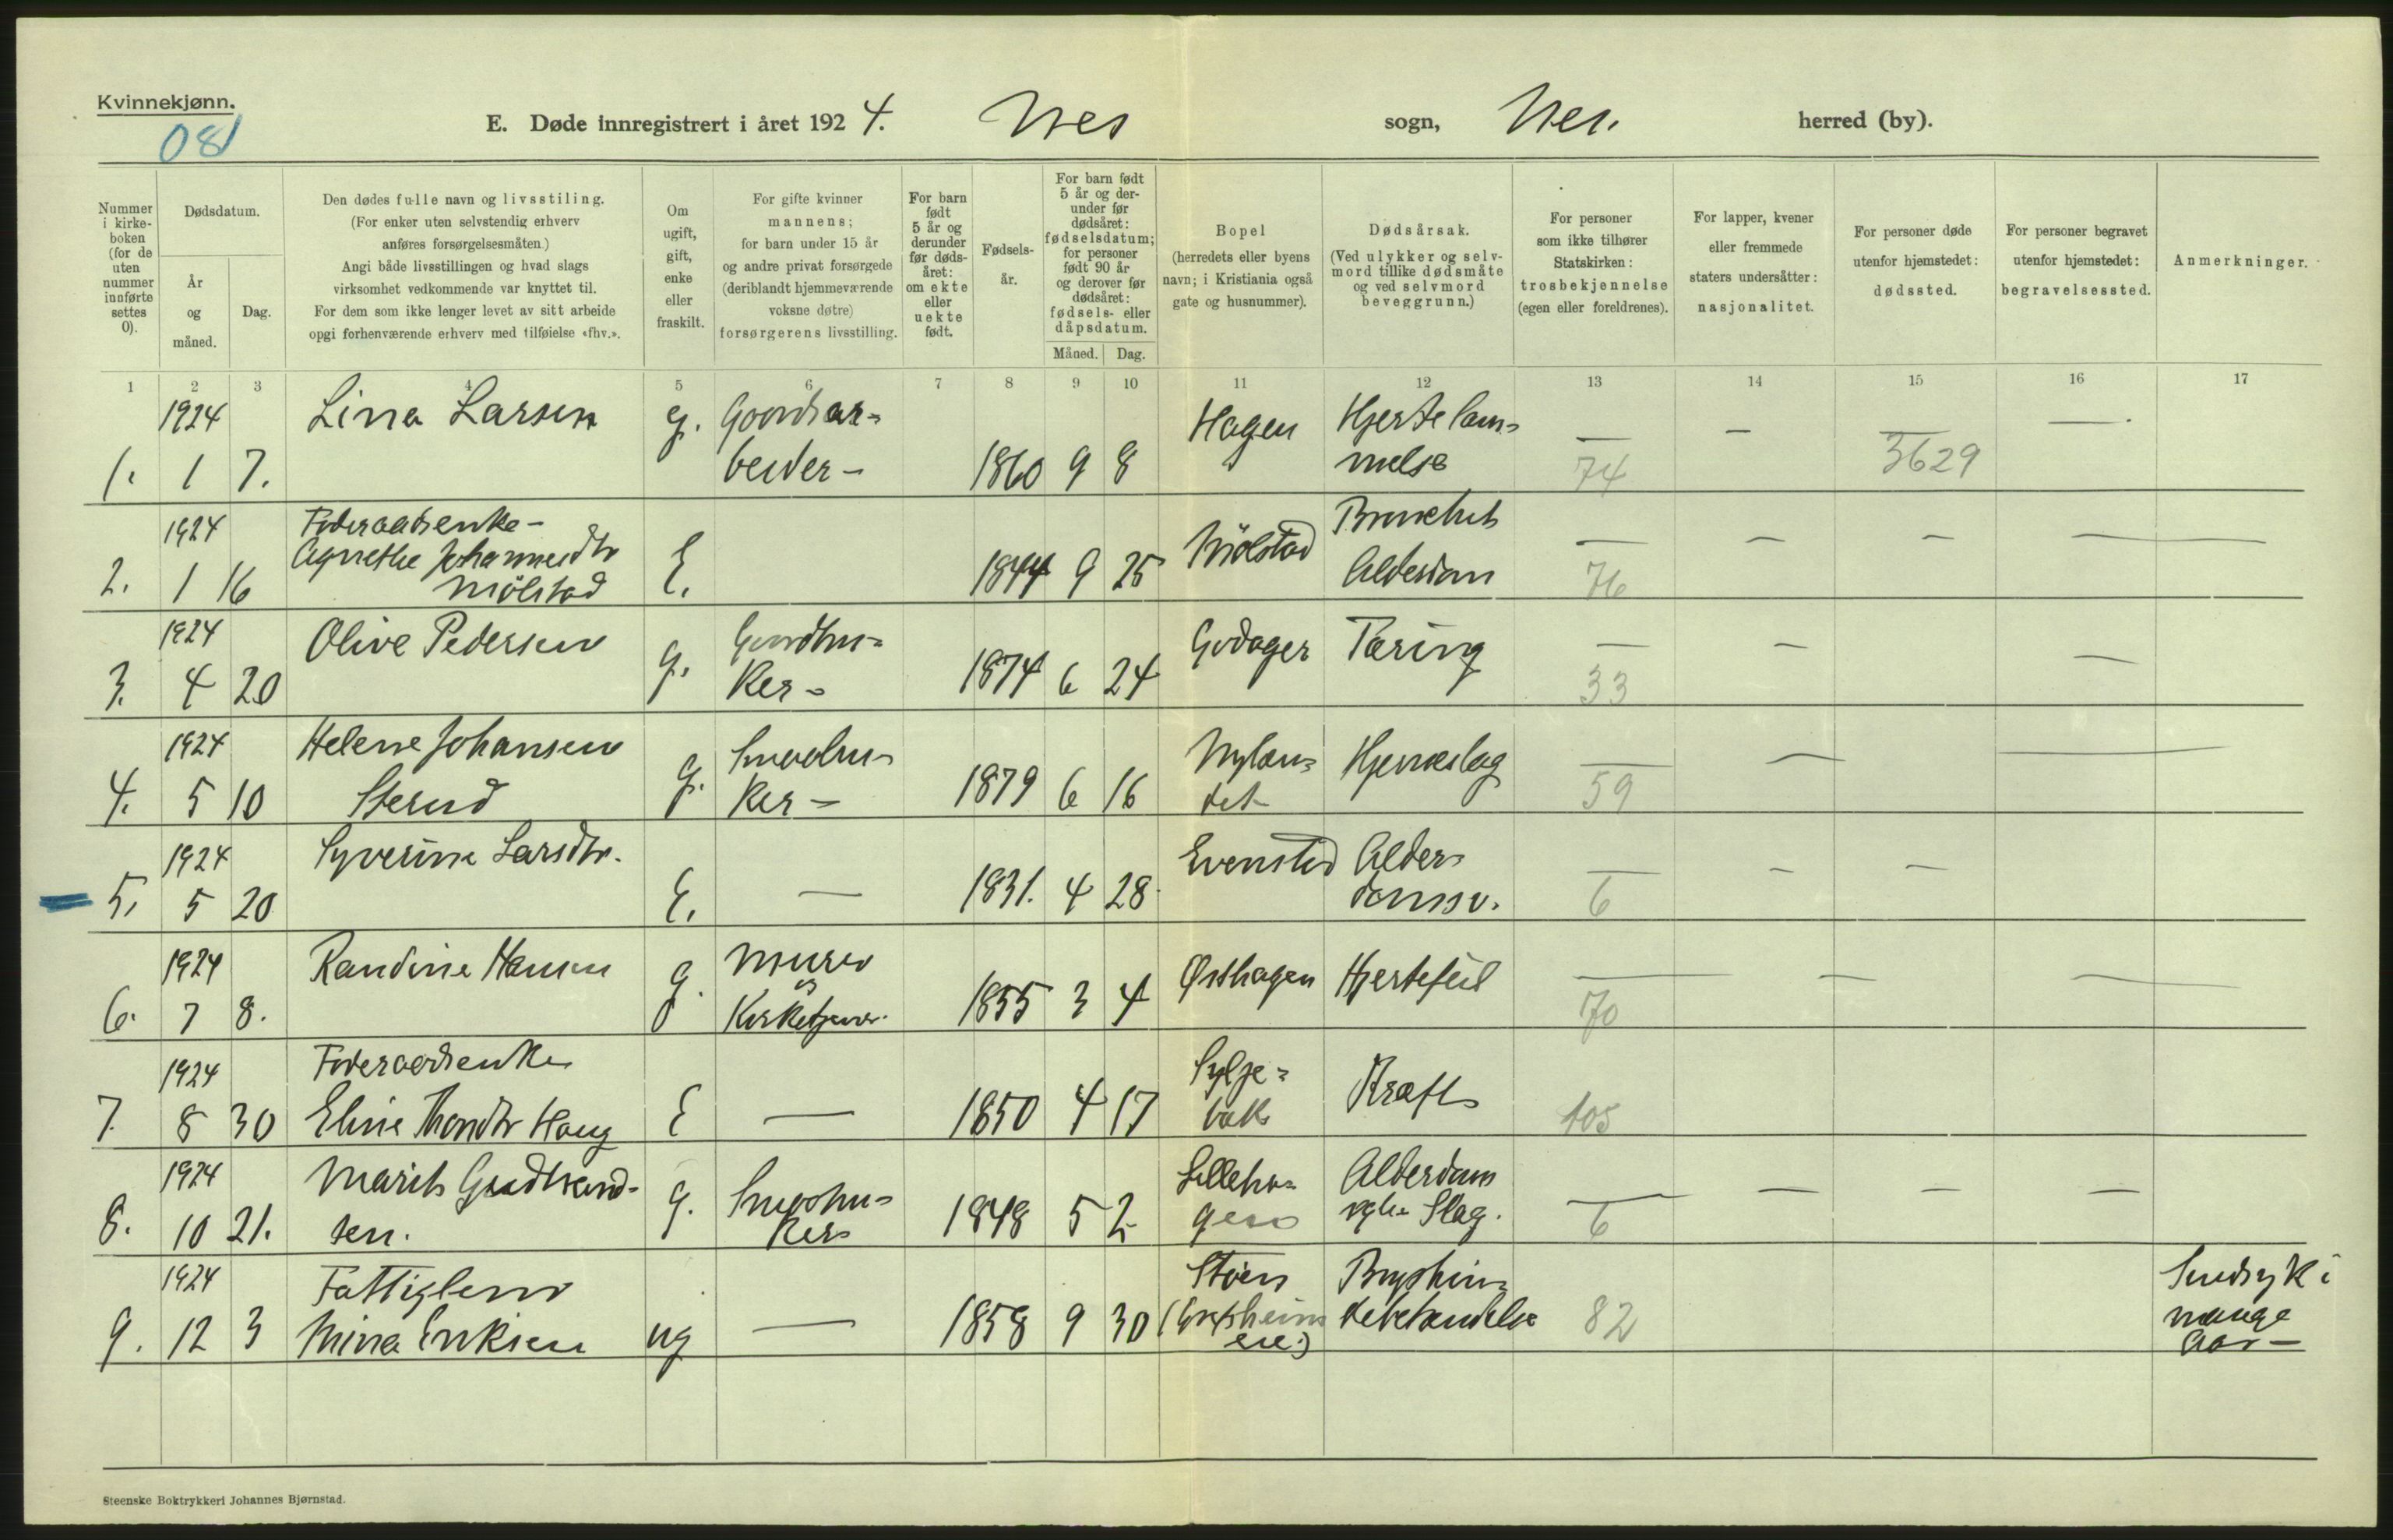 Kvinnekjønn.
081
E. Døde innregistrert i året 1924. Nes sogn, Nes. herred (by).
Nummer i kirkeboken (for de uten nummer innførte settes 0).
Dødsdatum.
År og måned.
Dag.
Den dødes fulle navn og livsstiling.
(For enker uten selvstendig erhverv
anføres forsørgelsesmåten.)
Angi både livsstillingen og hvad slags
virksomhet vedkommende var knyttet til.
For dem som ikke lenger levet av sitt arbeide
opgi forhenværende erhverv med tilføielse «fhv.».
Om ugift, gift, enke eller fraskilt.
For gifte kvinner
mannens;
for barn under 15 år
og andre privat forsørgede
(deriblandt hjemmeværende
voksne døtre)
forsørgerens livsstilling.
For barn født 5 år og derunder før dødsåret: om ekte eller uekte født.
Fødselsår.
For barn født 5 år og derunder før dødsåret: fødselsdatum; for personer født 90 år og derover før dødsåret: fødsels- eller dåpsdatum.
Måned. Dag.
Bopel
(herredets eller byens
navn; i Kristiania også
gate og husnummer).
Dødsårsak.
(Ved ulykker og selv-
mord tillike dødsmåte
og ved selvmord
beveggrunn.)
For personer
som ikke tilhører
Statskirken:
trosbekjennelse
(egen eller foreldrenes).
For lapper, kvener
eller fremmede
staters undersåtter:
nasjonalitet.
For personer døde
utenfor hjemstedet:
dødssted.
For personer begravet
utenfor hjemstedet:
begravelsessted.
Anmerkninger.
1 2 3 4 5 6 7 8 9 10 11 12 13 14 15 16 17
1924 Lina Larsen g. Gaardsar- Hagen Hjertelam- — — — —
1. 1 7. beider - 1860 9 8 melse 74 3629
1924 Føderaadsenke - Bronchit
Agnethe Johannesdtr E. Mölstad — — — —
2. 1 16 Mölstad 1844 9 25 Alderdom 76
1924 Olive Pedersen g. Gaardbru- Godager Tæring — — —
3. 4 20 ker - 1874 6 24 33
1924 Helene Johansen g. Smaabru- Nylan- Hjerneslag — — —
4. 5 10 Sterud ker - 1879 6 16 det 59
1924 Syverine Larsdtr. Evenstad Alder- — — —
5. 5 20 E. — 1831. 4 28 domssv. 6
1924 Randine Hansen g. Murer Østhagen Hjertefeil — — —
6. 7 8. og Kirketjener. 1855 3 4 70
1924 Føderaadsenke Sylje- Kræft
7. 8 30 Eline Thordtr Haug E — 1850 4 17 bak 105
1924 Marit Gudbrand- g. Smaabru- Lilleha- Alderdom — — — —
8. 10 21. sen. ker 1848 5 2 gen og Slag. 6
1924 Fattiglem Støen Brysthin- Sindsyk i
9. 12 3 Mina Eriksen ug — 1858 9 30 debetændelse 82 mange
Aar -
Steenske Boktrykkeri Johannes Bjørnstad.